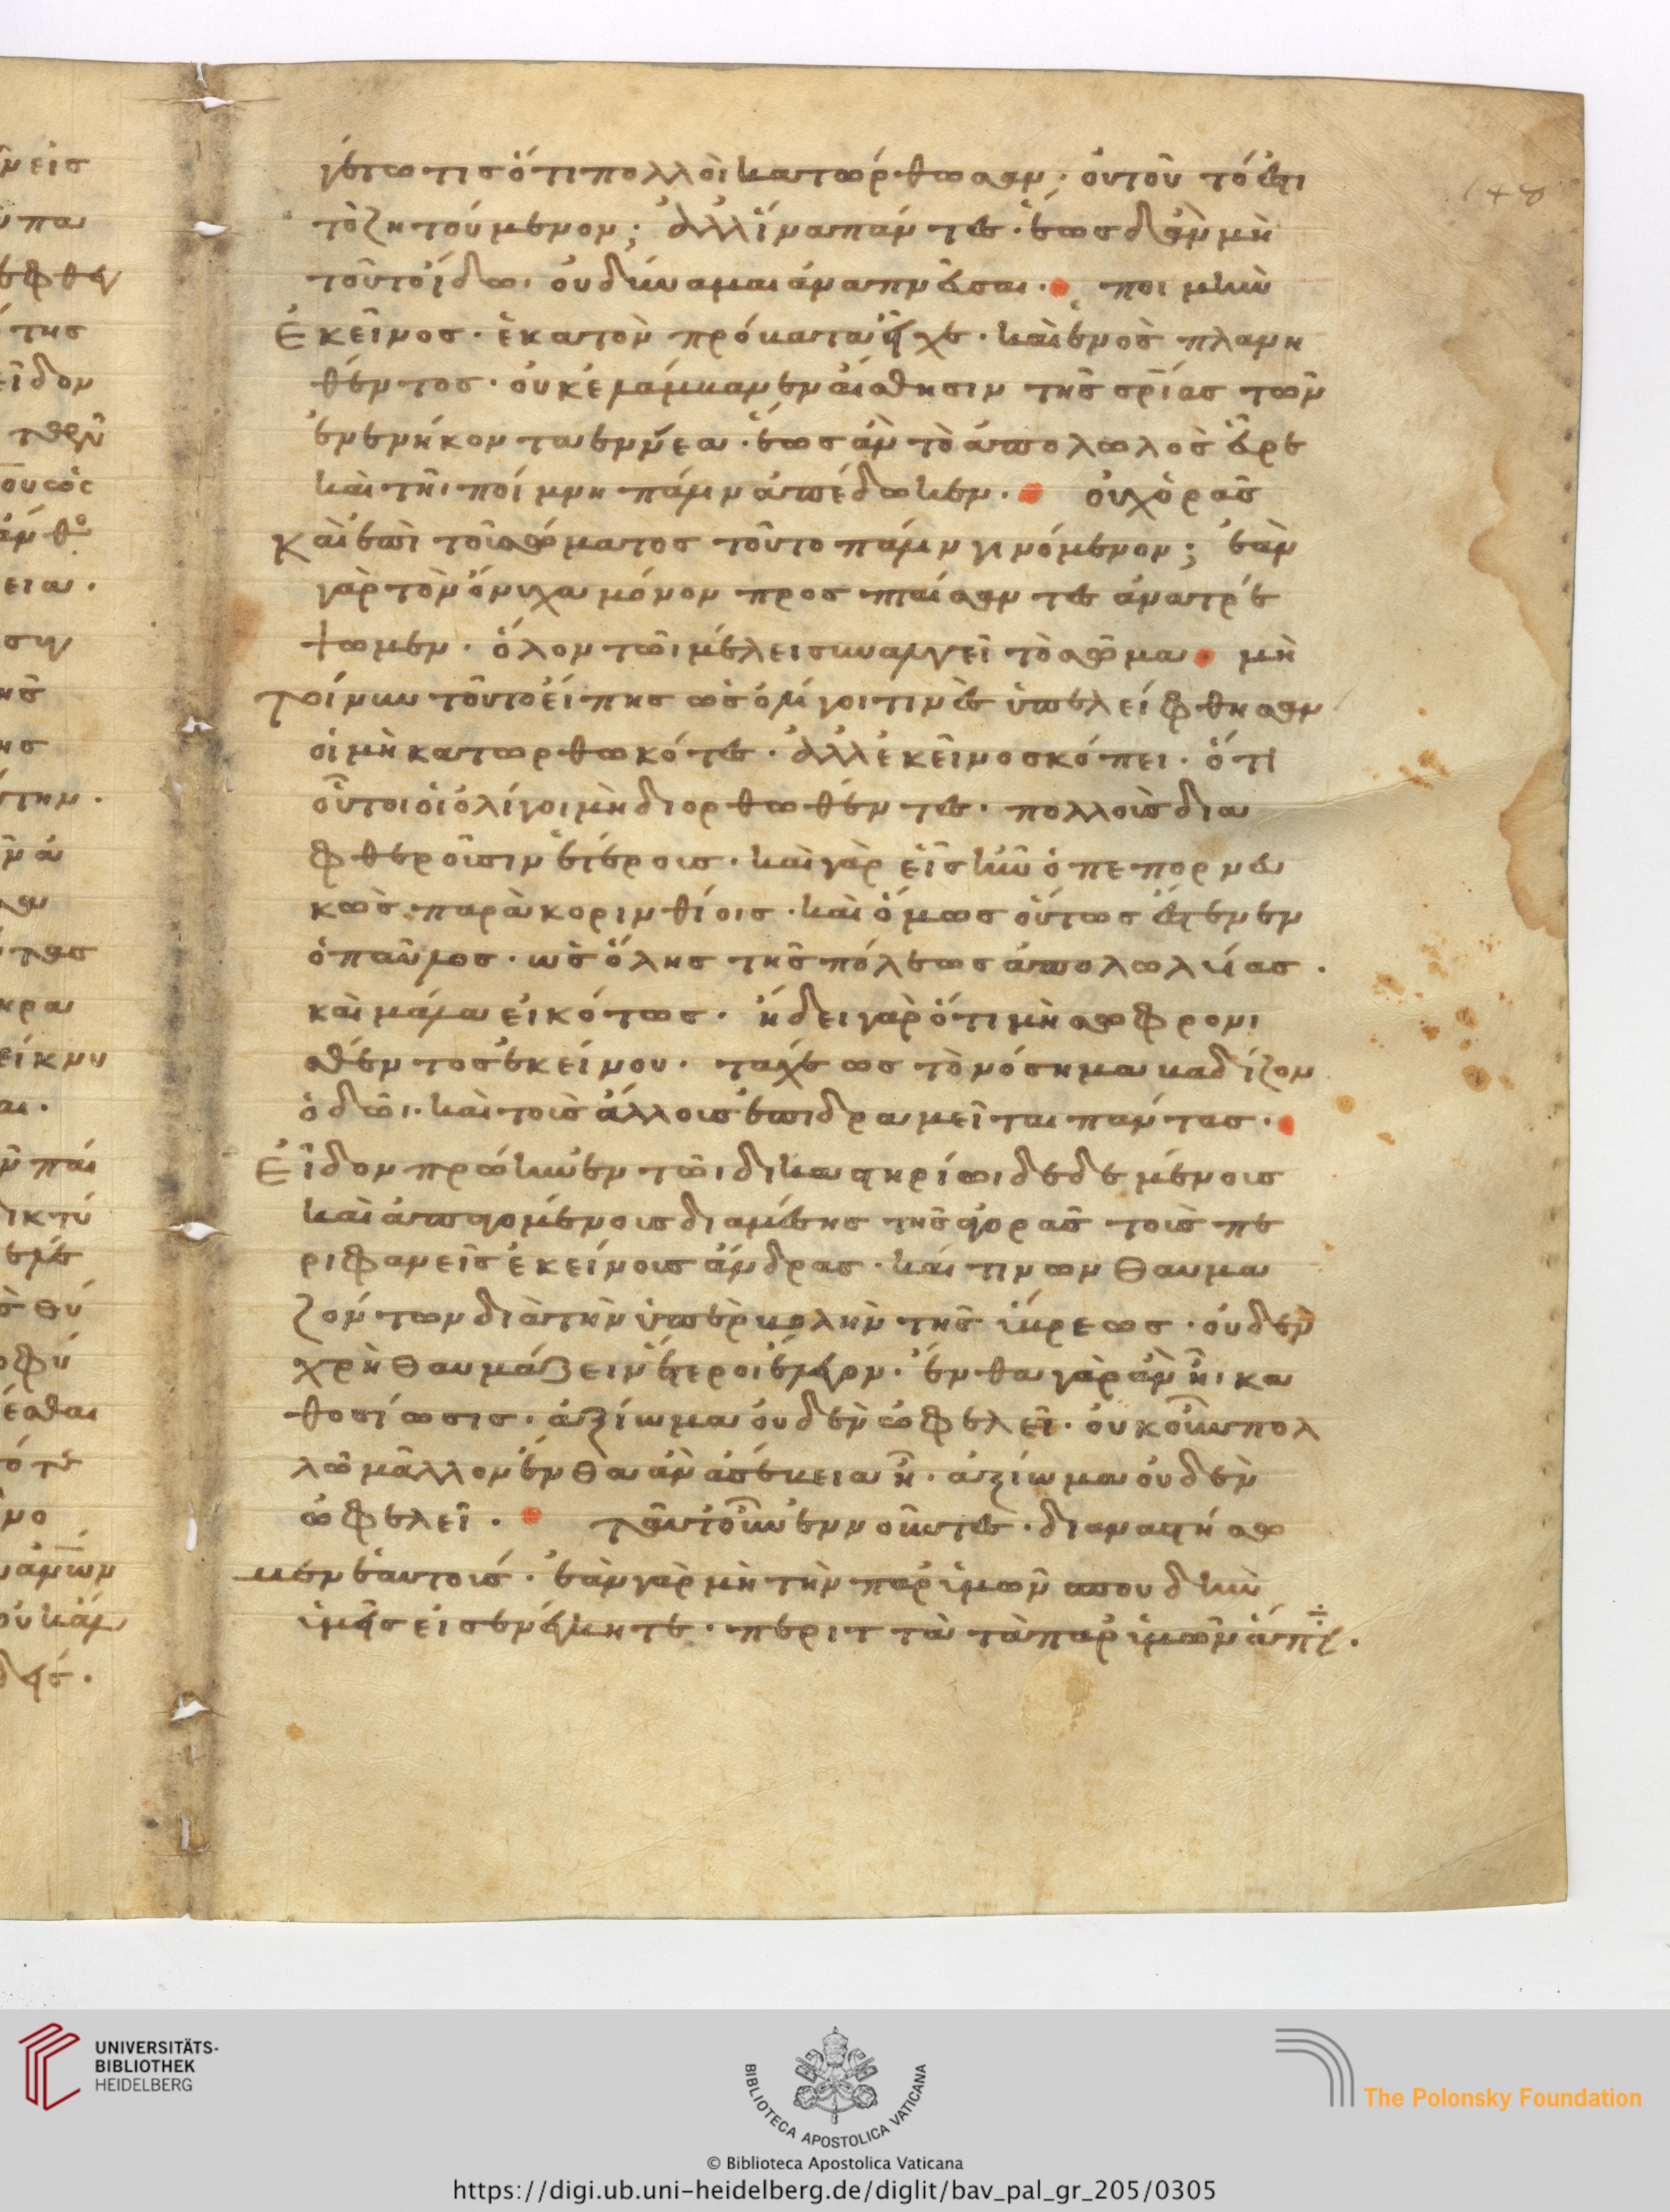 γέτω τις ὅτι πολλοὶ κατώρθωσαν· οὐ τοῦ τό ἐστι
τὸ ζητούμενον; ἀλλ' ἵνα πάντες· ἕως δ' ἂν μὴ
τοῦτο ἴδω· οὐ δύναμαι ἀναπνεῦσαι· ποιμὴν
Ἐκεῖνος· ἑκατὸν πρόβατα εἶχε· καὶ ἑνὸς πλανη
θέντος· οὐκ ἐλάμβανεν αἴσθησιν τῆς σρίας τῶν
ἐνενήκοντα ἐννέα· ἕως ἂν τὸ ἀπολωλὸς εὗρε
καὶ τῆι ποίμνη πάλιν ἀπέδωκεν· οὐχ ὁρᾶς
Καὶ ἐπὶ τοῦ σώματος τοῦτο πάλιν γινόμενον; ἐὰν
γὰρ τὸν ὄνυχα μόνον προσπταίσαντες ἀνατρέ
ψωμεν· ὅλον τῶι μέλει συναλγεῖ τὸ σῶμα· μὴ
Τοίνυν τοῦτο εἴπης ὡς ὀλίγοι τινὲς ὑπελείφθησαν
οἱ μὴ κατωρθωκότες· ἀλλ' ἐκεῖνο σκόπει· ὅτι
οὗτοι οἱ ὀλίγοι μὴ διορθωθέντες· πολλοὺς δια
φθεροῦσιν ἑτέρους· καὶ γὰρ εἷς ἦν ὁ πεπορνευ
κὼς παρὰ κορινθίοις· καὶ ὅμως οὕτως ἔστενεν
ὁ παῦλος· ὡς ὅλης τῆς πόλεως ἀπολωλυίας·
καὶ μάλα εἰκότως· ἤδει γὰρ ὅτι μὴ σωφρονι
σθέντος ἐκείνου· ταχέως τὸ νόσημα βαδίζον
ὁδῶι· καὶ τοὺς ἄλλους ἐπιδραμεῖται πάντας·
Εἶδον πρώην ἐν τῶι δικαστηρίωι δεδεμένους
καὶ ἀπαγομένους διαμέσης τῆς ἀγορᾶς τοὺς πε
ριφανεῖς ἐκείνους ἄνδρας· καί τινων θαυμα
ζόντων διὰ τὴν ὑπερβολὴν τῆς ὕβρεως· οὐδὲν
χρὴ θαυμάζειν ἕτεροι ἔλεγον· ἔνθα γὰρ ἂν ἦι κα
θοσίωσις· ἀξίωμα οὐδὲν ὠφελεῖ· οὐκοῦν πολ
λῶ μᾶλλον ἔνθα ἂν ἀσέβεια ἦ· ἀξίωμα οὐδὲν
ὠφελεῖ· ταῦτ' οὖν ἐννοοῦντες· διαναστήσω
μεν ἑαυτούς· ἐὰν γὰρ μὴ τὴν παρ' ὑμῶν σπουδὴν
ὑμεῖς εἰσενέγκητε· περιττὰ τὰ παρ' ἡμῶν
148
UNIVERSITÄTS-
BIBLIOTHEK
HEIDELBERG
BIBLIOTECA APOSTOLICA VATICANA
The Polonsky Foundation
© Biblioteca Apostolica Vaticana
https://digi.ub.uni-heidelberg.de/diglit/bav_pal_gr_205/0305